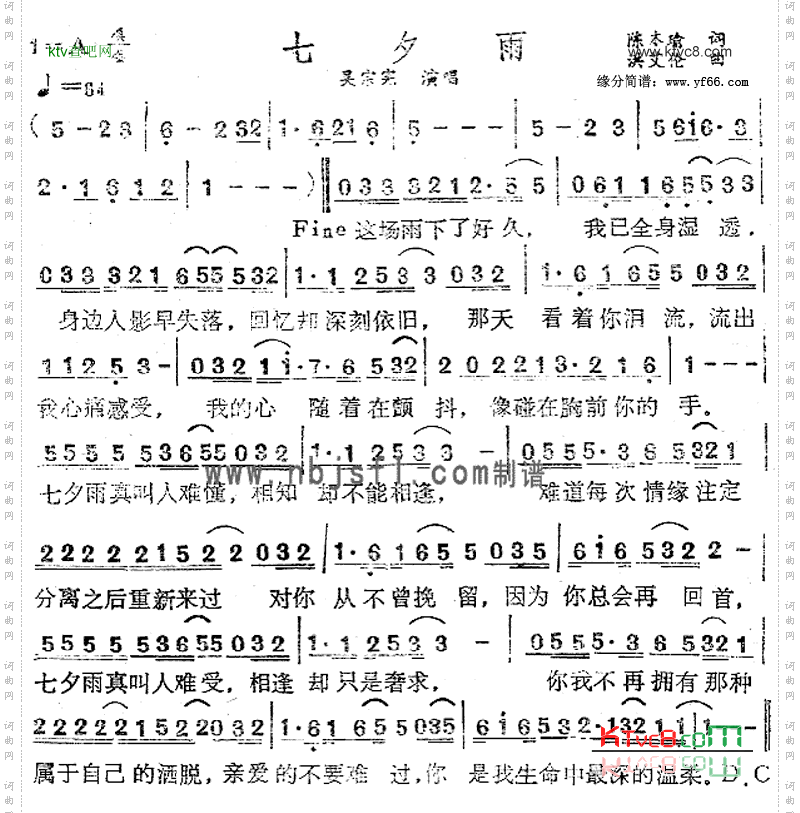 七夕雨
陈木瑜 词
洪文伦 曲
吴宗宪 演唱
ktv查吧网
www.ktvc8.com
缘分简谱: www.yf66.com
♩=84
(5-23 | 6-232 | 1·6216 | 5--- | 5-23 | 56i6·3
2·1612 | 1---) 033 3212·55 | 061165533
Fine 这场雨下了好久， 我已全身湿 透，
0333321655532 | 1·12533032 | 1·61655032
身边人影早失落，回忆却深刻依旧， 那天 看着你泪 流，流出
11253- | 03211·7·6532 | 2022213·216 | 1---
我心痛感受， 我的心 随着在颤 抖，像碰在胸前你的 手。
55555365555032 | 1·12533- | 0555·365321
www.nbjsfl.com制谱
七夕雨真叫人难懂，相知 却不能相逢， 难道每次情缘注定
222221522032 | 1·61655035 | 6i65322-
分离之后重新来过 对你 从不曾挽 留，因为你总会再 回首，
5555536555032 | 1·12533- | 0555·365321
七夕雨真叫人难受，相逢 却只是奢求， 你我不再拥有那种
2222221522032 | 1·61655035 | 6i6532·13211|1-
KTvc8.com
属于自己的洒脱，亲爱的不要难 过，你 是我生命中最深的温柔。D.C
词曲网